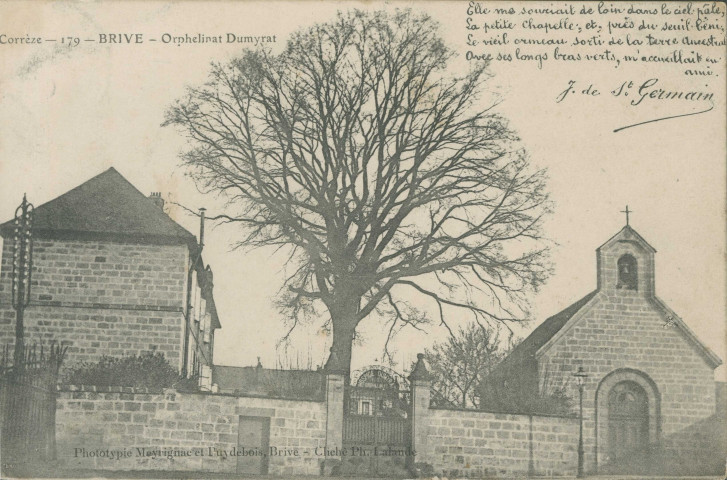 Corrèze — 179 — BRIVE — Orphelinat Dumyrat
Elle me souriait de loin dans le ciel pâle,
La petite Chapelle; et, près du seuil béni,
Le vieil ormeau sorti de la terre Ancestrale
Avec ses longs bras verts, m'accueillait en
ami.
J. de St Germain
Phototypie Meyrignac et Puydebois, Brive - Cliché Ph. Lalande